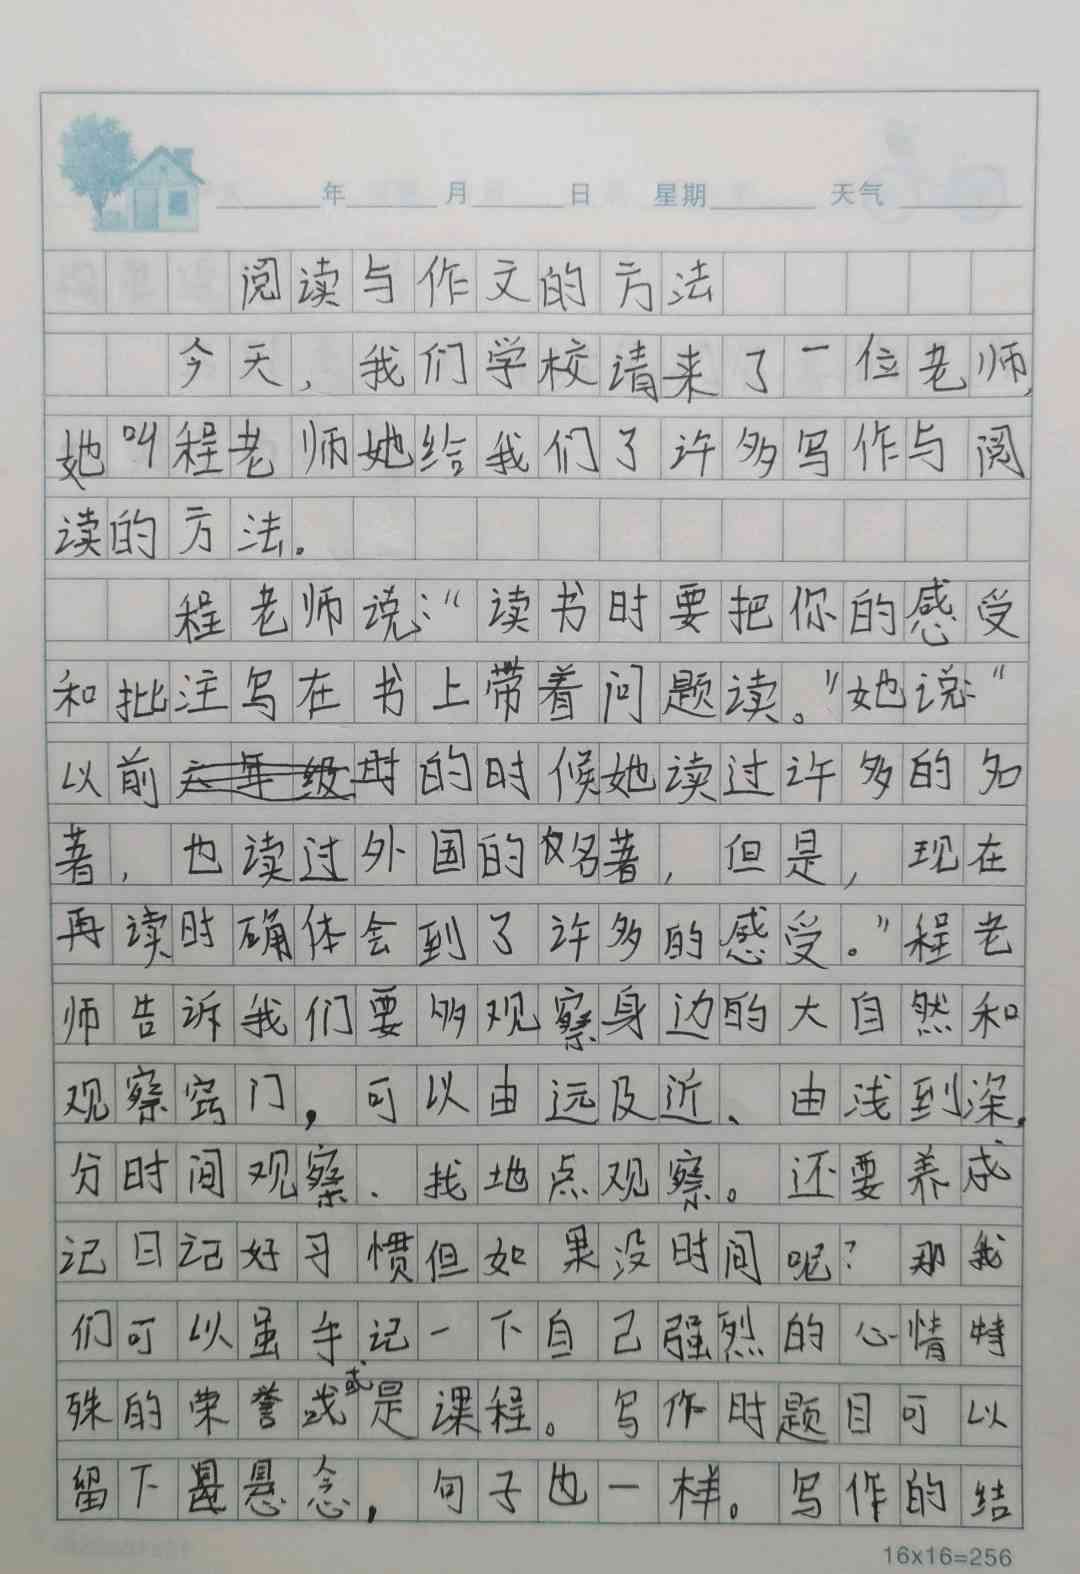 年 月 日 星期 天气
阅读与作文的方法
今天，我们学校请来了一位老师，
她叫程老师她给我们了许多写作与阅
读的方法。
程老师说：“读书时要把你的感受
和批注写在书上带着问题读。”她说：“
以前的时候她读过许多的名
著，也读过外国的名著，但是，现在
再读时确体会到了许多的感受。”程老
师告诉我们要多观察身边的大自然和
观察窍门，可以由远及近、由浅到深，
分时间观察、找地点观察。还要养成
记日记好习惯但如果没时间呢？那我
们可以虽手记一下自己强烈的心情特
殊的荣誉或是课程。写作时题目可以
留下悬念，句子也一样。写作的结
16x16=256